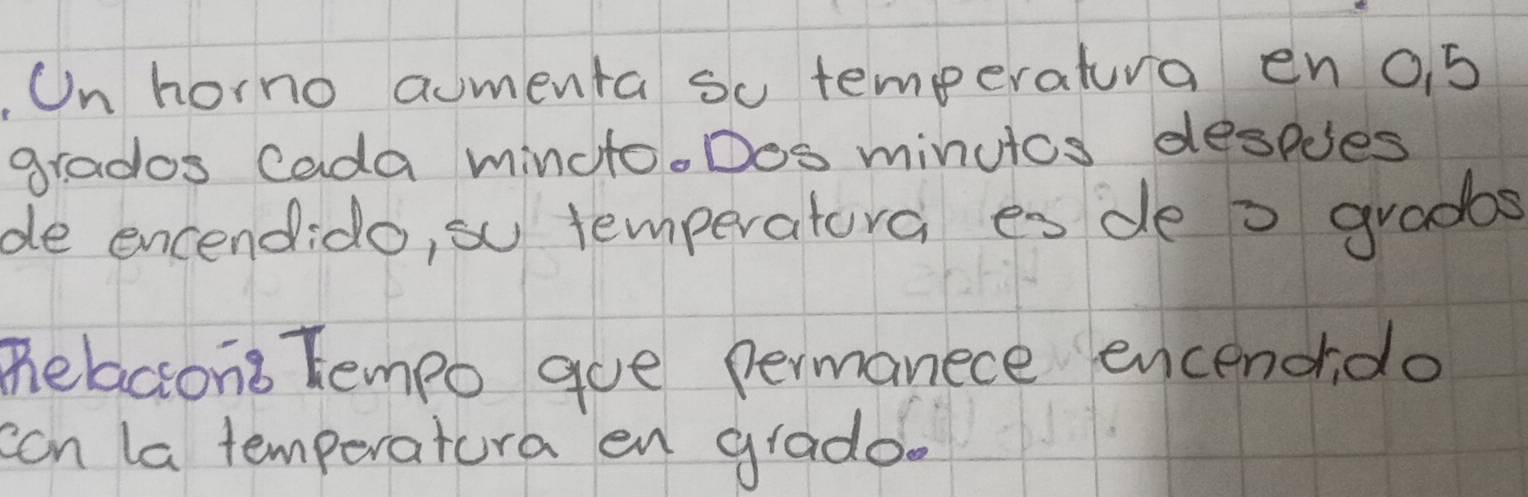 . Un horno aumenta su temperatura en 0,5
grados cada minuto. Dos minutos después
de encendido, su temperatura es de grados
Relación: Tiempo que permanece encendido
con la temperatura en grado.